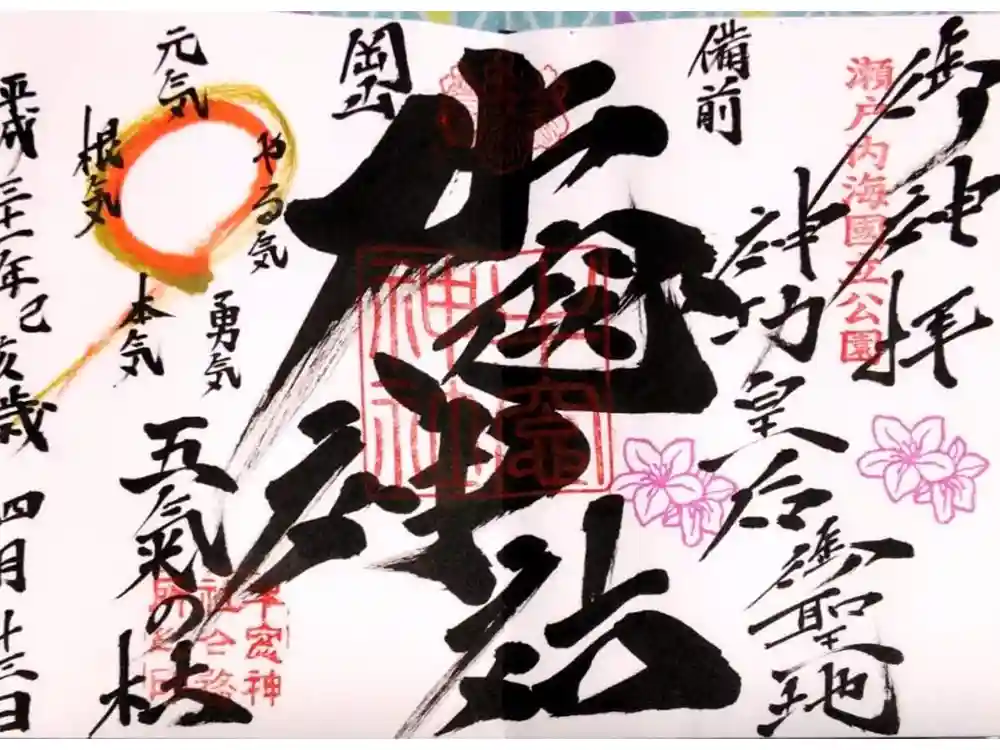 御神拝
瀬戸内海國立公園
備前
神功皇后御聖地
牛窓神社
牛窓神社
岡山
元気
やる気
根気
勇気
本気
五氣の杜
牛窓神
平成三十一年己亥歳 四月廿三日